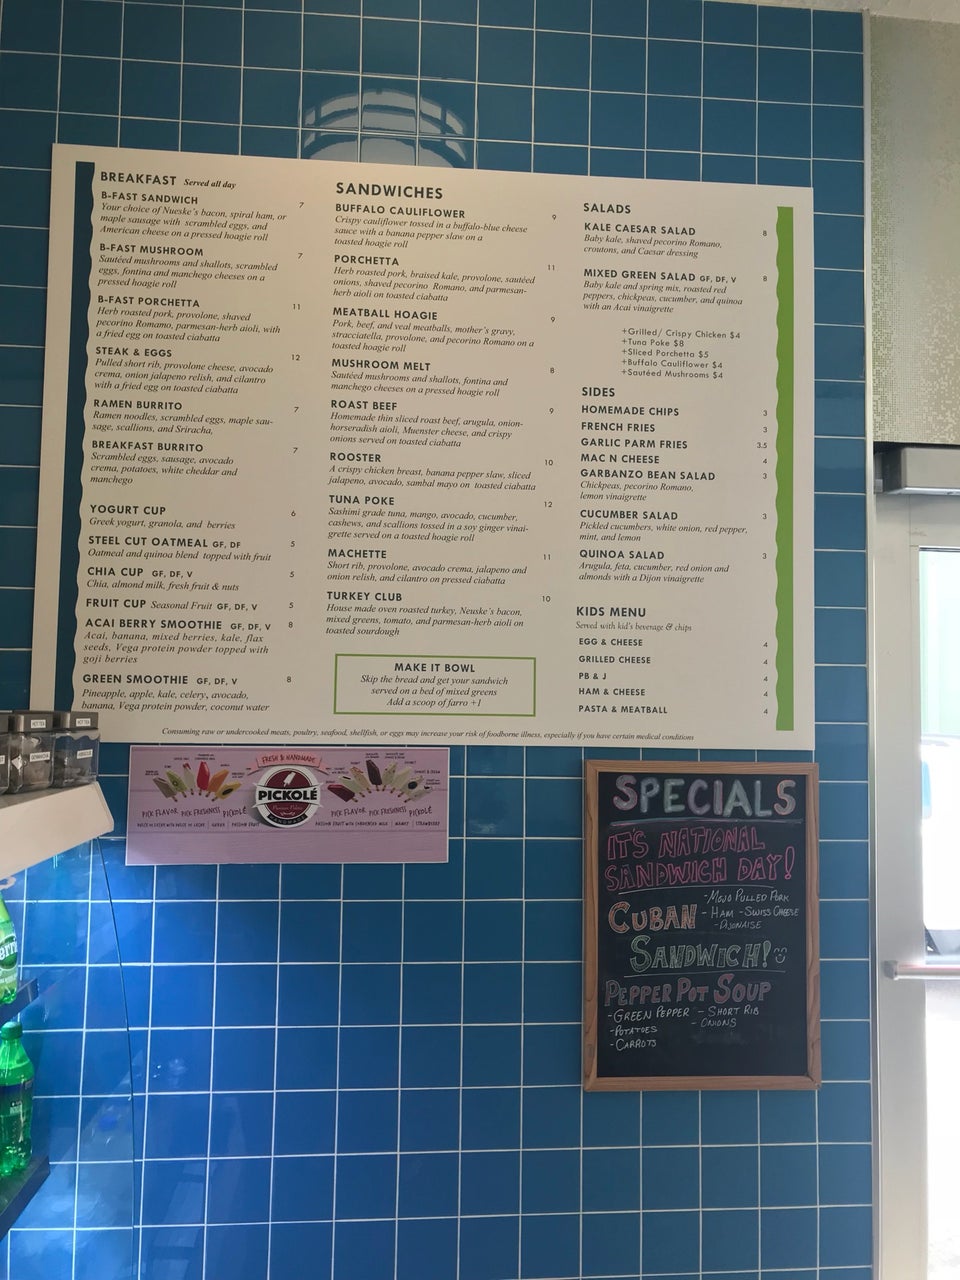 BREAKFAST Served all day
B-FAST SANDWICH 7
Your choice of Nueske's bacon, spiral ham, or
maple sausage with scrambled eggs, and
American cheese on a pressed hoagie roll
B-FAST MUSHROOM 7
Sautéed mushrooms and shallots, scrambled
eggs, fontina and manchego cheeses on a
pressed hoagie roll
B-FAST PORCHETTA 11
Herb roasted pork, provolone, shaved
pecorino Romamo, parmesan-herb aioli, with
a fried egg on toasted ciabatta
STEAK & EGGS 12
Pulled short rib, provolone cheese, avocado
crema, onion jalapeno relish, and cilantro
with a fried egg on toasted ciabatta
RAMEN BURRITO 7
Ramen noodles, scrambled eggs, maple sau-
sage, scallions, and Sriracha,
BREAKFAST BURRITO 7
Scrambled eggs, sausage, avocado
crema, potatoes, white cheddar and
manchego
YOGURT CUP 6
Greek yogurt, granola, and berries
STEEL CUT OATMEAL GF, DF 5
Oatmeal and quinoa blend topped with fruit
CHIA CUP GF, DF, V 5
Chia, almond milk, fresh fruit & nuts
FRUIT CUP Seasonal Fruit GF, DF, V 5
ACAI BERRY SMOOTHIE GF, DF, V 8
Acai, banana, mixed berries, kale, flax
seeds, Vega protein powder topped with
goji berries
GREEN SMOOTHIE GF, DF, V 8
Pineapple, apple, kale, celery, avocado,
banana, Vega protein powder, coconut water
SANDWICHES
BUFFALO CAULIFLOWER 9
Crispy cauliflower tossed in a buffalo-blue cheese
sauce with a banana pepper slaw on a
toasted hoagie roll
PORCHETTA 11
Herb roasted pork, braised kale, provolone, sautéed
onions, shaved pecorino Romano, and parmesan-
herb aioli on toasted ciabatta
MEATBALL HOAGIE 9
Pork, beef, and veal meatballs, mother's gravy,
stracciatella, provolone, and pecorino Romano on a
toasted hoagie roll
MUSHROOM MELT 8
Sautéed mushrooms and shallots, fontina and
manchego cheeses on a pressed hoagie roll
ROAST BEEF 9
Homemade thin sliced roast beef, arugula, onion-
horseradish aioli, Muenster cheese, and crispy
onions served on toasted ciabatta
ROOSTER 10
A crispy chicken breast, banana pepper slaw, sliced
jalapeno, avocado, sambal mayo on toasted ciabatta
TUNA POKE 12
Sashimi grade tuna, mango, avocado, cucumber,
cashews, and scallions tossed in a soy ginger vinai-
grette served on a toasted hoagie roll
MACHETTE 11
Short rib, provolone, avocado crema, jalapeno and
onion relish, and cilantro on pressed ciabatta
TURKEY CLUB 10
House made oven roasted turkey, Neuske's bacon,
mixed greens, tomato, and parmesan-herb aioli on
toasted sourdough
MAKE IT BOWL
Skip the bread and get your sandwich
served on a bed of mixed greens
Add a scoop of farro +1
SALADS
KALE CAESAR SALAD 8
Baby kale, shaved pecorino Romano,
croutons, and Caesar dressing
MIXED GREEN SALAD GF, DF, V 8
Baby kale and spring mix, roasted red
peppers, chickpeas, cucumber, and quinoa
with an Acai vinaigrette
+Grilled/ Crispy Chicken $4
+Tuna Poke $8
+Sliced Porchetta $5
+Buffalo Cauliflower $4
+Sautéed Mushrooms $4
SIDES
HOMEMADE CHIPS 3
FRENCH FRIES 3
GARLIC PARM FRIES 3.5
MAC N CHEESE 4
GARBANZO BEAN SALAD 3
Chickpeas, pecorino Romano,
lemon vinaigrette
CUCUMBER SALAD 3
Pickled cucumbers, white onion, red pepper,
mint, and lemon
QUINOA SALAD 3
Arugula, feta, cucumber, red onion and
almonds with a Dijon vinaigrette
KIDS MENU
Served with kid's beverage & chips
EGG & CHEESE 4
GRILLED CHEESE 4
PB & J 4
HAM & CHEESE 4
PASTA & MEATBALL 4
Consuming raw or undercooked meats, poultry, seafood, shellfish, or eggs may increase your risk of foodborne illness, especially if you have certain medical conditions
FRESH & HANDMADE
PICKOLÉ
PICK FLAVOR PICK FRESHNESS PICKOLÉ
PICK FLAVOR PICK FRESHNESS PICKOLÉ
SPECIALS
IT'S NATIONAL
SANDWICH DAY!
CUBAN
- MOJO PULLED PORK
- HAM - SWISS CHEESE
- DIJONAISE
SANDWICH!
PEPPER POT SOUP
- GREEN PEPPER - SHORT RIB
- POTATOES - ONIONS
- CARROTS
HOT TEA
HOT TEA